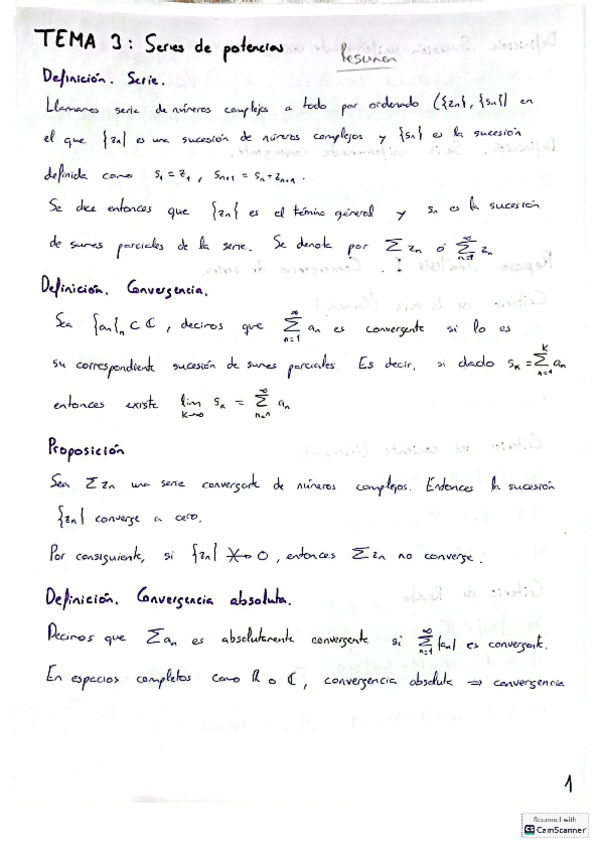 TEMA 3: Series de potencias Resumen
Definición. Serie.
Llamamos serie de números complejos a todo par ordenado ({zn}, {sn}) en
el que {zn} es una sucesión de números complejos y {sn} es la sucesión
definida como s₁ = z₁, sₙ₊₁ = sₙ + zₙ₊₁.
Se dice entonces que {zn} es el término general y sn es la sucesión
de sumas parciales de la serie. Se denota por Σ zn ó Σ_{n=1}^{∞} zn
Definición. Convergencia.
Sea {an}n ⊂ ℂ, decimos que Σ_{n=1}^{∞} an es convergente si lo es
su correspondiente sucesión de sumas parciales. Es decir, si dado sk = Σ_{n=1}^{k} an
entonces existe lim_{k→∞} sk = Σ_{n=n}^{∞} an
Proposición
Sea Σ zn una serie convergente de números complejos. Entonces la sucesión
{zn} converge a cero.
Por consiguiente, si {zn} ↛ 0, entonces Σ zn no converge.
Definición. Convergencia absoluta.
Decimos que Σ an es absolutamente convergente si Σ_{n=1}^{∞} |an| es convergente.
En espacios completos como ℝ o ℂ, convergencia absoluta ⇒ convergencia
1
Scanned with
CS CamScanner